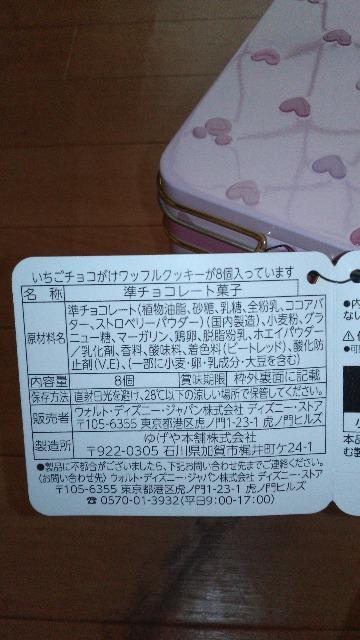 いちごチョコがけワッフルクッキーが8個入っています
名 称 準チョコレート菓子
原材料名 準チョコレート(植物油脂、砂糖、乳糖、全粉乳、ココアバ
ター、ストロベリーパウダー)(国内製造)、小麦粉、グラ
ニュー糖、マーガリン、鶏卵、脱脂粉乳、ホエイパウダー
/乳化剤、香料、酸味料、着色料(ビートレッド)、酸化防
止剤(V.E)、(一部に小麦・卵・乳成分・大豆を含む)
内容量 8個 賞味期限 枠外裏面に記載
保存方法 直射日光を避け、28℃以下の涼しい場所で保管してください。
販売者 ウォルト・ディズニー・ジャパン株式会社 ディズニー・ストア
〒105-6355 東京都港区虎ノ門1-23-1 虎ノ門ヒルズ
製造所 ゆげや本舗株式会社
〒922-0305 石川県加賀市梶井町ケ24-1
●製品に不都合がございましたら、下記お問い合わせ先までご連絡ください。
(お問い合わせ先)ウォルト・ディズニー・ジャパン株式会社 ディズニー・ストア
〒105-6355 東京都港区虎ノ門1-23-1 虎ノ門ヒルズ
☎ 0570-01-3932(平日9:00-17:00)